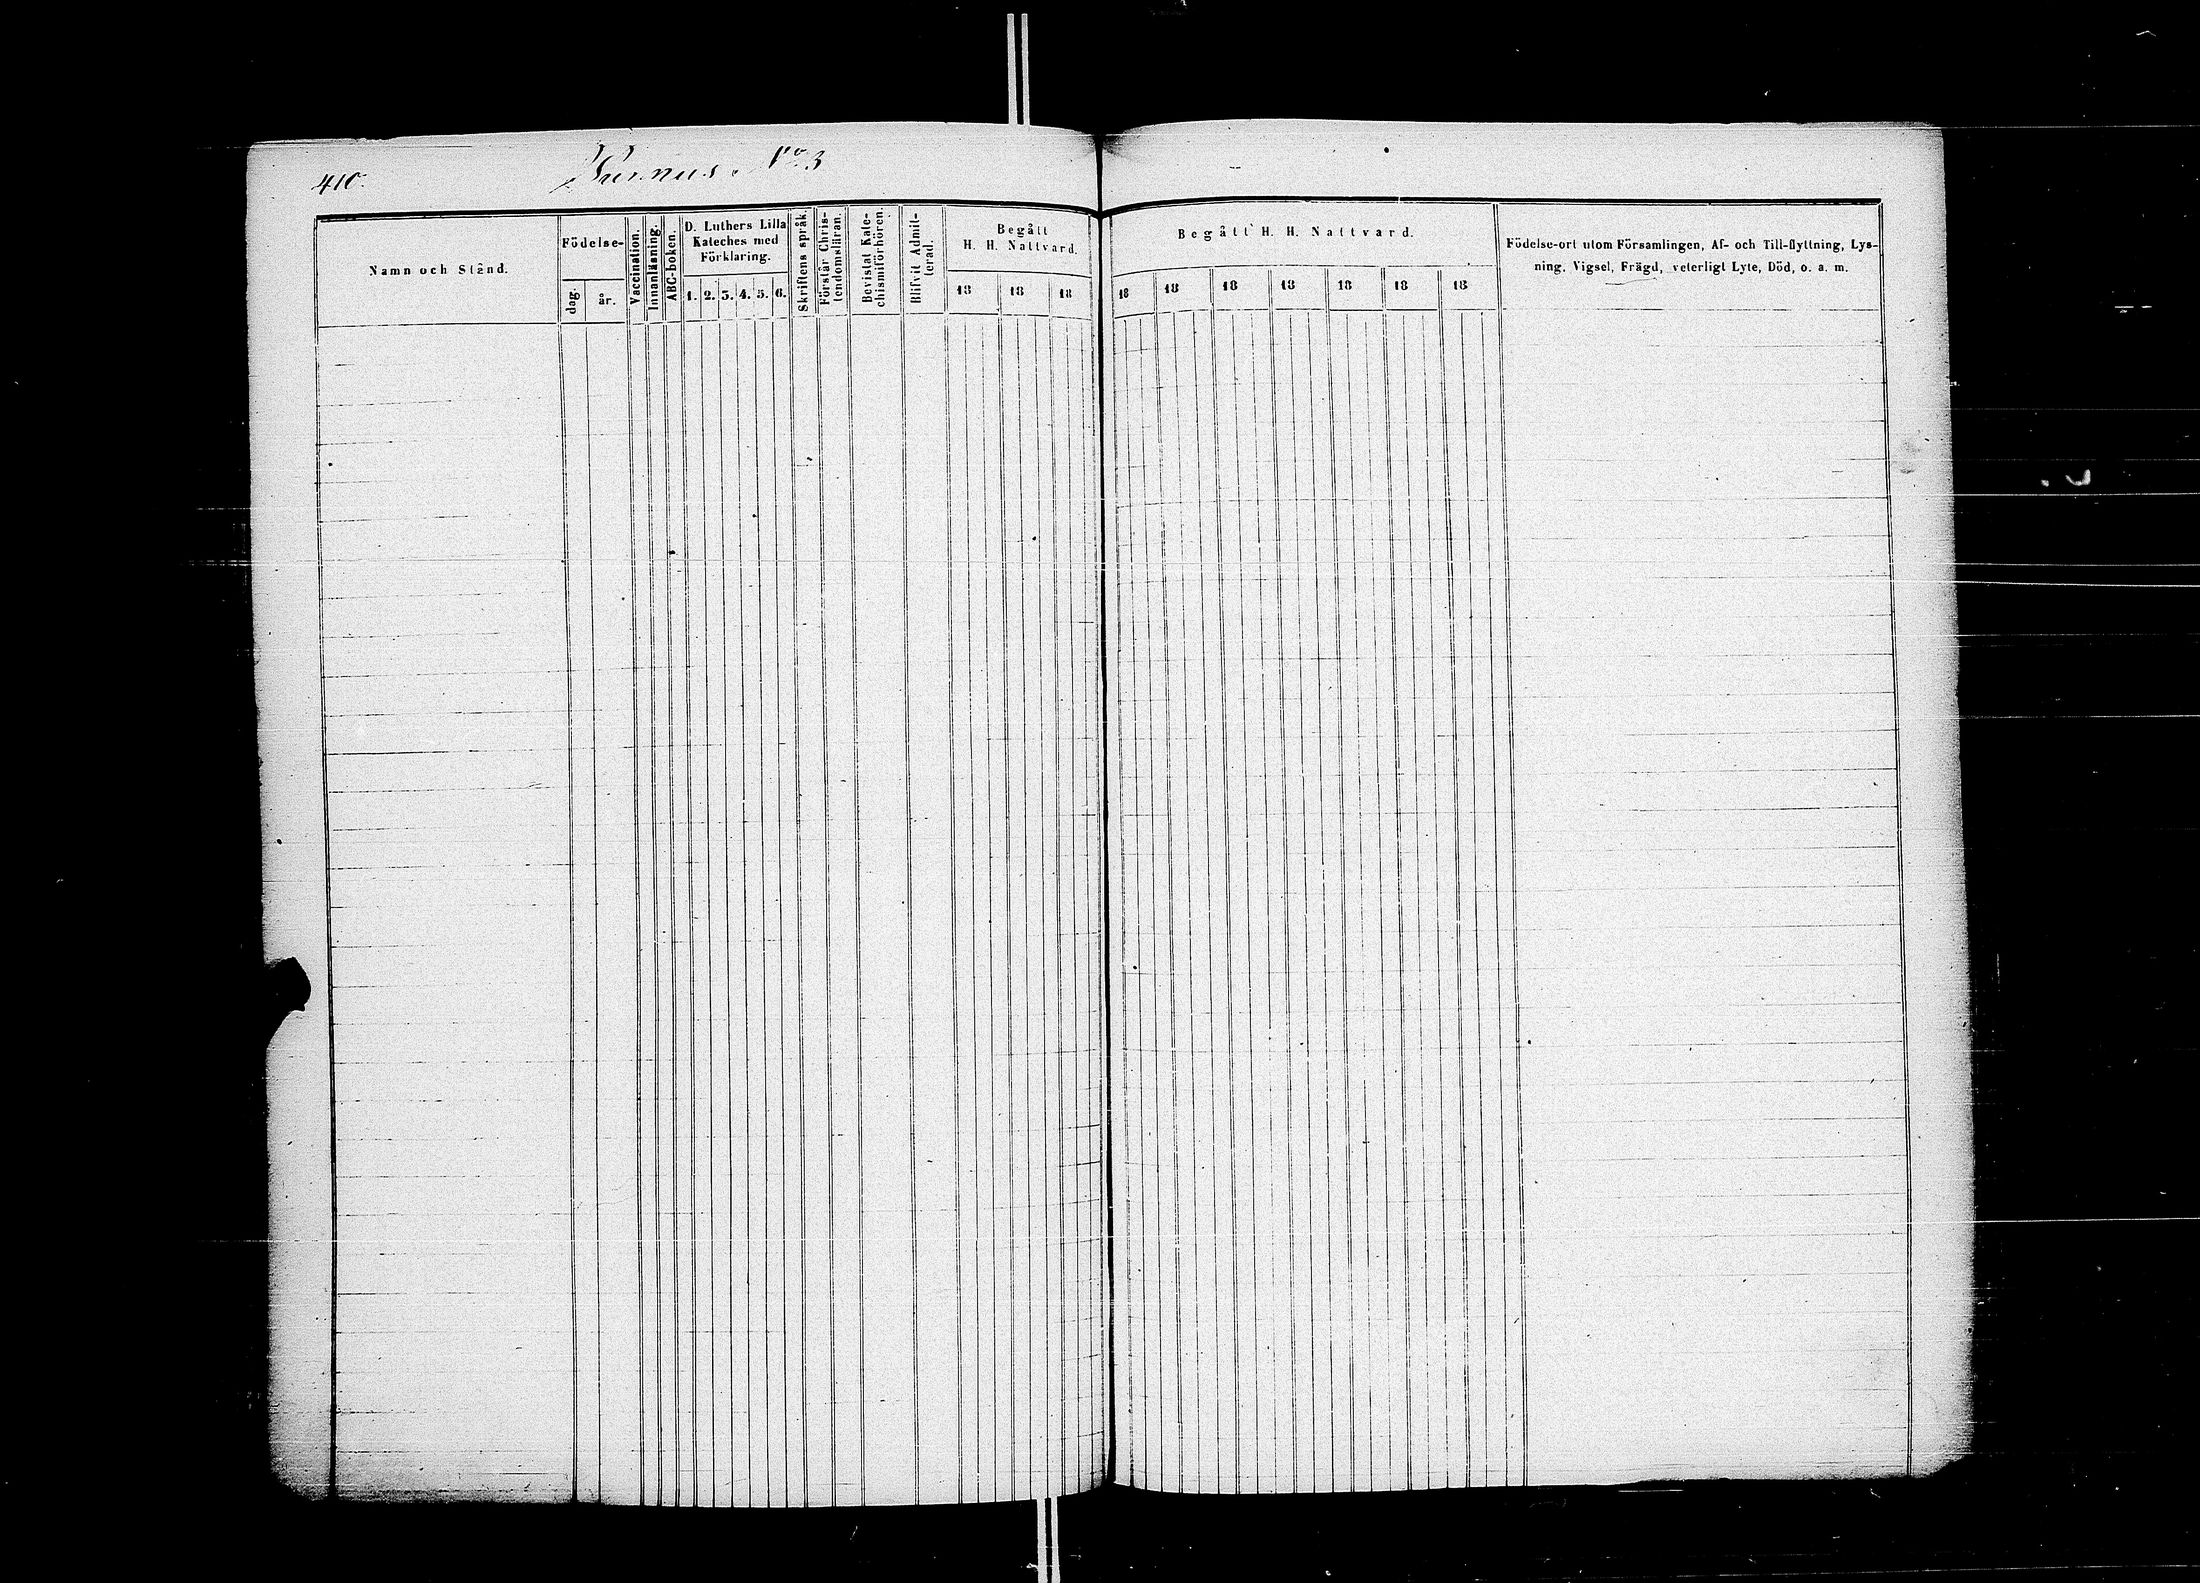 410.
No 3
Namn och Stånd.
Födelse-
dag.
år.
Vaccination.
Innanläsning.
ABC-boken.
D. Luthers Lilla
Kateches med
Förklaring.
1. 2. 3. 4. 5. 6.
Skriftens språk.
Förstår Chris-
tendomsläran.
Bevistat Kate-
chismiförhören.
Blifvit Admit-
terad.
Begått
H. H. Nattvard.
18 18 18
Begått H. H. Nattvard.
18 18 18 18 18 18 18
Födelse-ort utom Församlingen, Af- och Till-flyttning, Lys-
ning, Vigsel, Frägd, veterligt Lyte, Död, o. a. m.